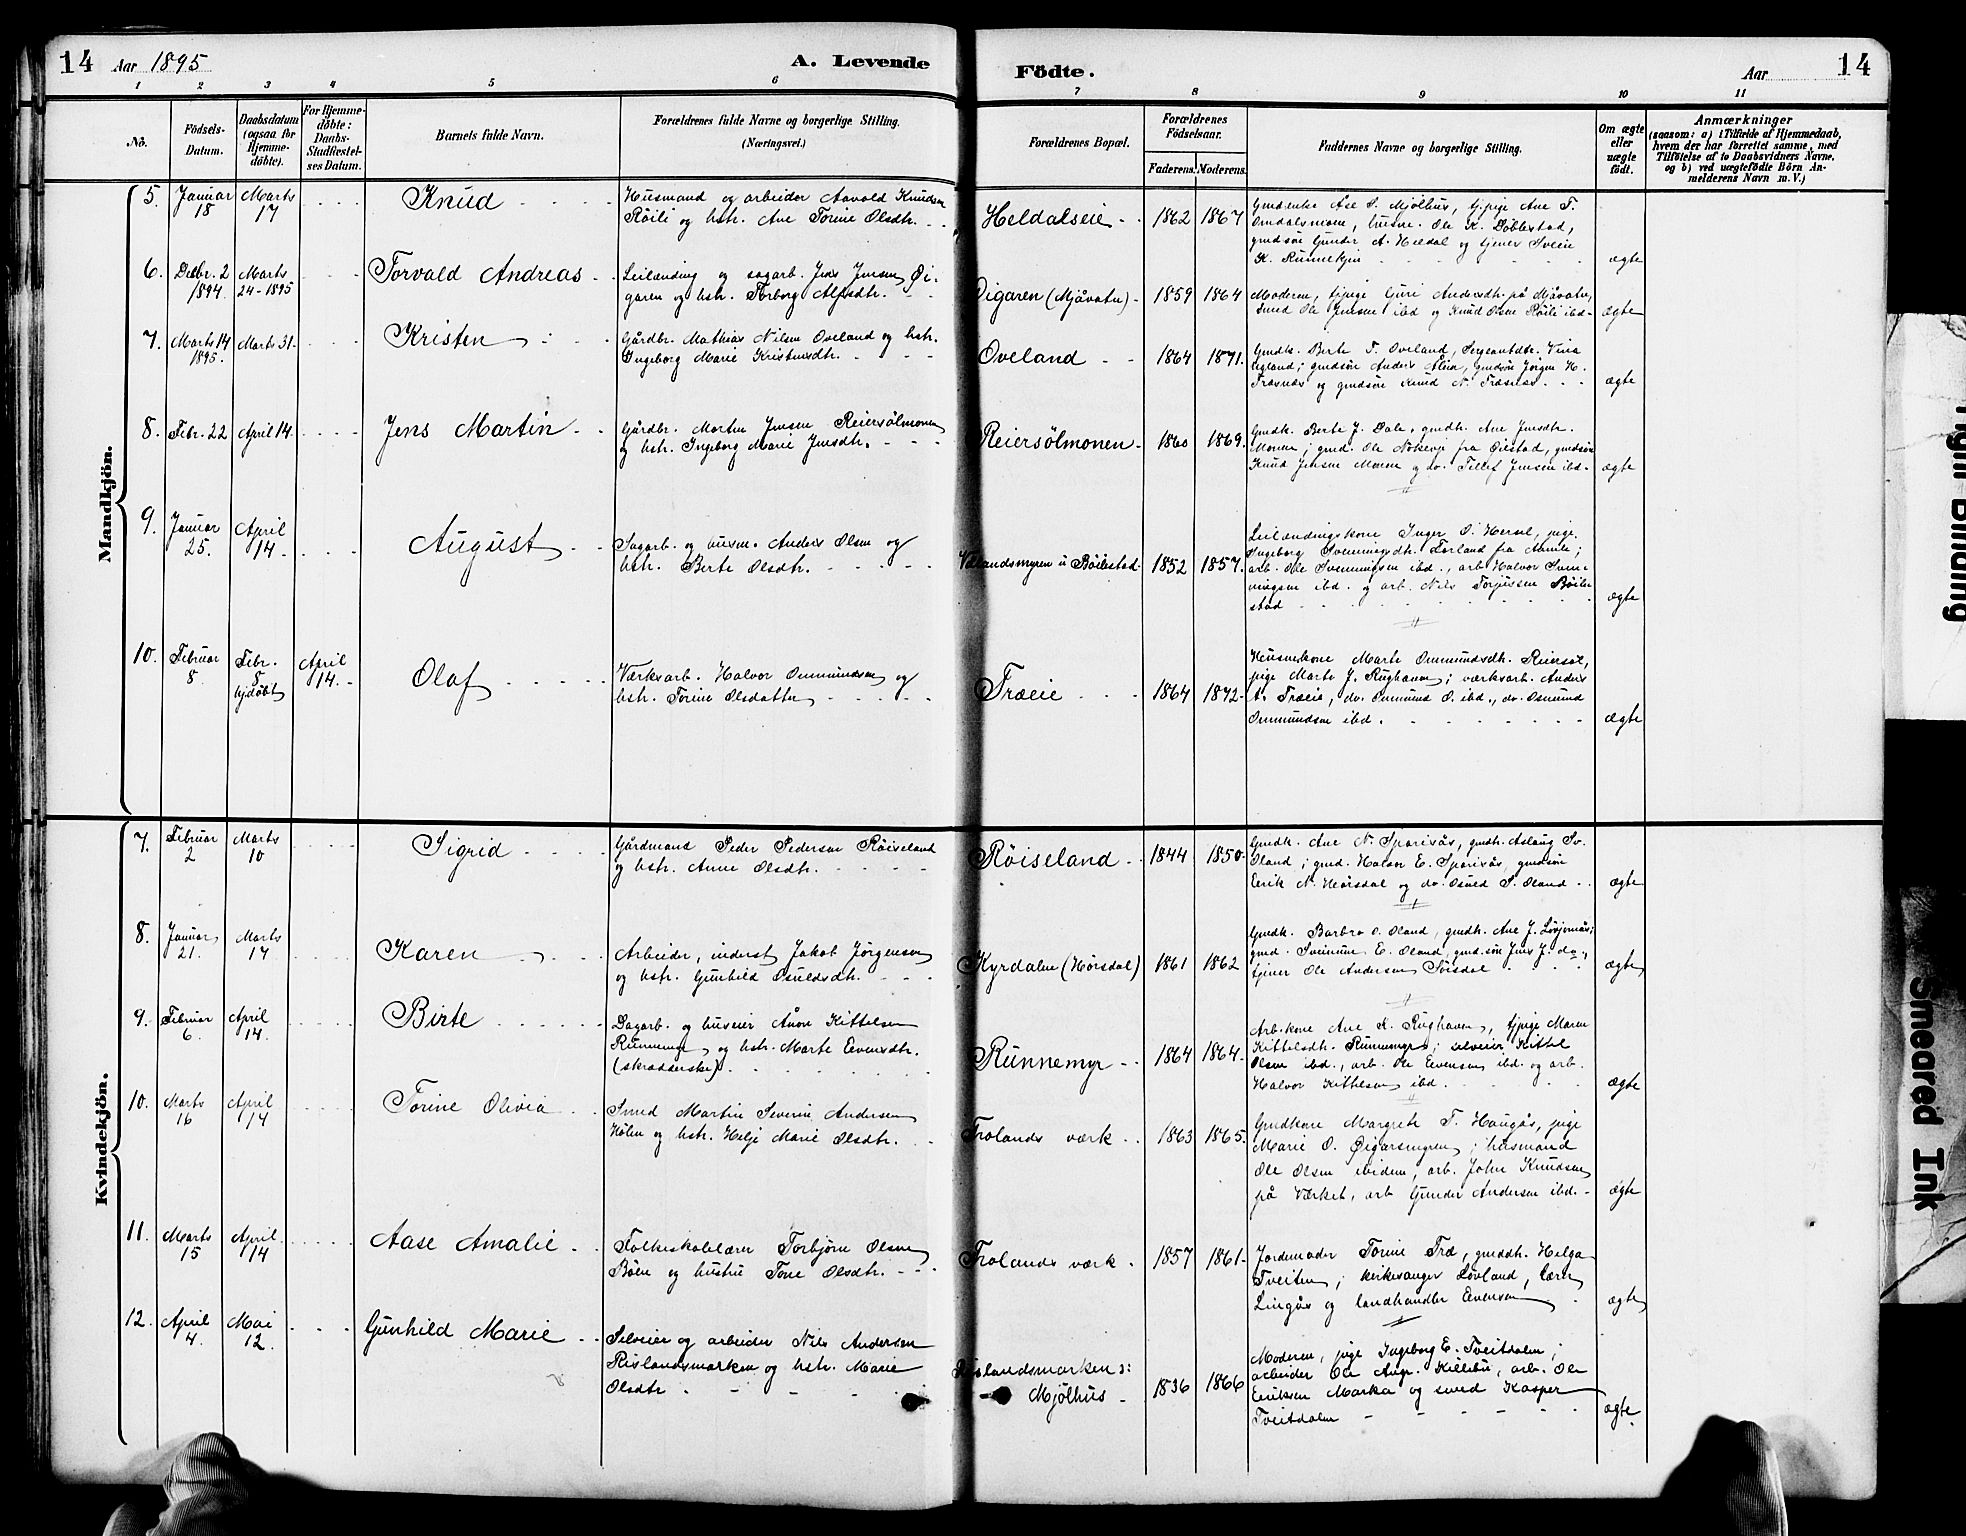 14 Aar 1895
A. Levende
Födte.
Aar 14
1 2 3 4 5 6 7 8 9 10 11
No.
Födsels-Datum.
Daabsdatum (ogsaa for Hjemme-döbte).
For Hjemme-döbte: Daabs-Stadfæstel-ses Datum.
Barnets fulde Navn.
Forældrenes fulde Navne og borgerlige Stilling. (Næringsvei.)
Forældrenes Bopæl.
Forældrenes Födselsaar.
Faderens. Moderens.
Faddernes Navne og borgerlige Stilling.
Om ægte eller uægte födt.
Anmærkninger
(saasom: a) i Tilfælde af Hjemmedaab, hvem der har forrettet samme, med Tilföielse af to Daabsvidners Navne, og b) ved uægtefödte Börn An-melderens Navn m. V.)
Mandkjön.
5. Januar 18 Marts 17
Knud
Husmand og arbeider Aavald Knudsen
Röili og hstr. Ane Torine Olsdtr.
Heldalseie 1862 1867
K. Runnekjen
ægte
6. Decbr. 2 1894. Marts 24-1895
Torvald Andreas
Leilænding og sagarb. Jens Jensen Öi-
garen og hstr. Torborg Alfsdtr.
Öigaren (Mjåvatn) 1859 1864
Moderen, tjpige Guri Andersdtr. på Mjåvatn,
Smed Ole Jensen ibd og Knud Olsen Röili ibd
ægte
7. Marts 14 1895. Marts 31
Kristen
Gårdbr. Mathias Nilsen Oveland og hstr.
Ingeborg Marie Kristensdtr.
Oveland 1864 1871.
Gmdk. Berte T. Oveland, Sergeantdtr.
Træsnæs og gmdsön Knud N. Træsnæs
ægte
8. Febr. 22 April 14
Jens Martin
Gårdbr. Morten Jensen Reiersölmonen
og hstr. Ingeborg Marie Jensdtr.
Reiersölmonen 1860 1869.
Gmdk. Berte J. Dale, gmdtr. Ane Jensdtr.
Monen; gmd. Ole fra Öiestad, gmdsön
Knud Jensen Monen og do. Tellef Jensen ibd
ægte
9. Januar 25. April 14
August
Sagarb. og husm. Anders Olsen og
hstr. Berte Olsdtr.
Vålandsmyren u Böilestad 1852 1857.
Leilændingskone Inger O. Hersel, pige
Ingeborg Svenningsdtr. Forland fra Åmli;
arb. Ole Svenningsen ibd., arb Halvor Sven-
ningsen ibd. og arb. Nils Torjusen Böile
stad
ægte
10. Februar 8 Febr. 8 hjdöbt April 14.
Olaf
Værksarb. Halvor Ommundsen og
hstr. Torine Olsdatter
Træeie 1864 1872
Husmkone Marte Ommundsdtr. Reiersöl,
pige Marte J. Rughaven; værksarb. Anders
A. Træeie, do. Ommund O. ibd., do. Osmund
Ommundsen ibd.
ægte
Kvindekjön.
7. Februar 2 Marts 10
Sigrid
Gårdmand Peder Pedersen Röiseland
og hstr. Anne Olsdtr.
Röiseland 1844 1850
Gmdk. Ane N. Sparsås, gmdtr. Aslaug Sv.
Öland; gmd. Halvor E. Sparsås, gmdsön
Eerik N. Hörsdal og do. Osuld S. Öland
ægte
8. Januar 21. Marts 17
Karen
Arbeider, inderst Jakob Jörgensen
og hstr. Gunhild Osuldsdtr.
Kyrdalen (Hörsdal) 1861 1862
Gmdk. Barbro O. Öland, gmdtr. Ane J.
gmd. E. Öland, gmd.sön Jens J. do.,
tjener Ole Andersen Sörsdal
ægte
9. Februar 6. April 14.
Birte
Dagarb. og huseier Åvon Kittelsen
Runnemyr og hstr. Marte Evensdtr.
(skrædderske)
Runnemyr 1864 1864
Arb.kone Ane K. Rughaven, tjpige Maren
Kittelsdtr. Runnemyr; selveier Kittel
Olsen ibd., arb. Ole Evensen ibd. og arb.
Halvor Kittelsen ibd.
ægte
10. Marts 16 April 14
Torine Olivia
Smed Martin Severin Andersen
Hölen og hstr. Helje Marie Olsdtr.
Frolands værk 1863 1865.
Gmdkone Margrete T. Haugås, pige
Marie O. Öigarsmyren; husmand
Ole Olsen ibidem, arb. John Knudsen
på Værket, arb Gunder Andersen ibd.
ægte
11. Marts 15 April 14
Aase Amalie
Folkeskolelærer Torbjörn Olsen
Böen og hustru Tone Olsdtr.
Frolands værk 1857 1861
Jordemoder Torine Træ, gmddtr. Helga
Tveiten; kirkesanger Lövland, lærer
Lingås og landhandler Evensen
ægte
12. April 4. Mai 12.
Gunhild Marie
Selveier og arbeider Nils Andersen
Rislandsmarken og hstr. Marie
Olsdtr
Rislandsmarken ɔ:
Mjölhus 1836 1866
Moderen, pige Ingeborg E. Tveitdalen;
arbeider Ole Aug. Killebu, arb. Ole
Eeriksen Marka og smed Kasper
Tveitdalen
ægte
Tight Binding
Smeared Ink